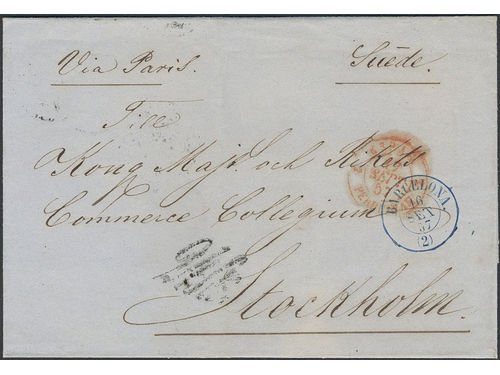 Via Paris. Suède.
Till
Kong Majt. och Rikets
Commerce Collegium
Stockholm.
BARCELONA
10
SET
57
(2)